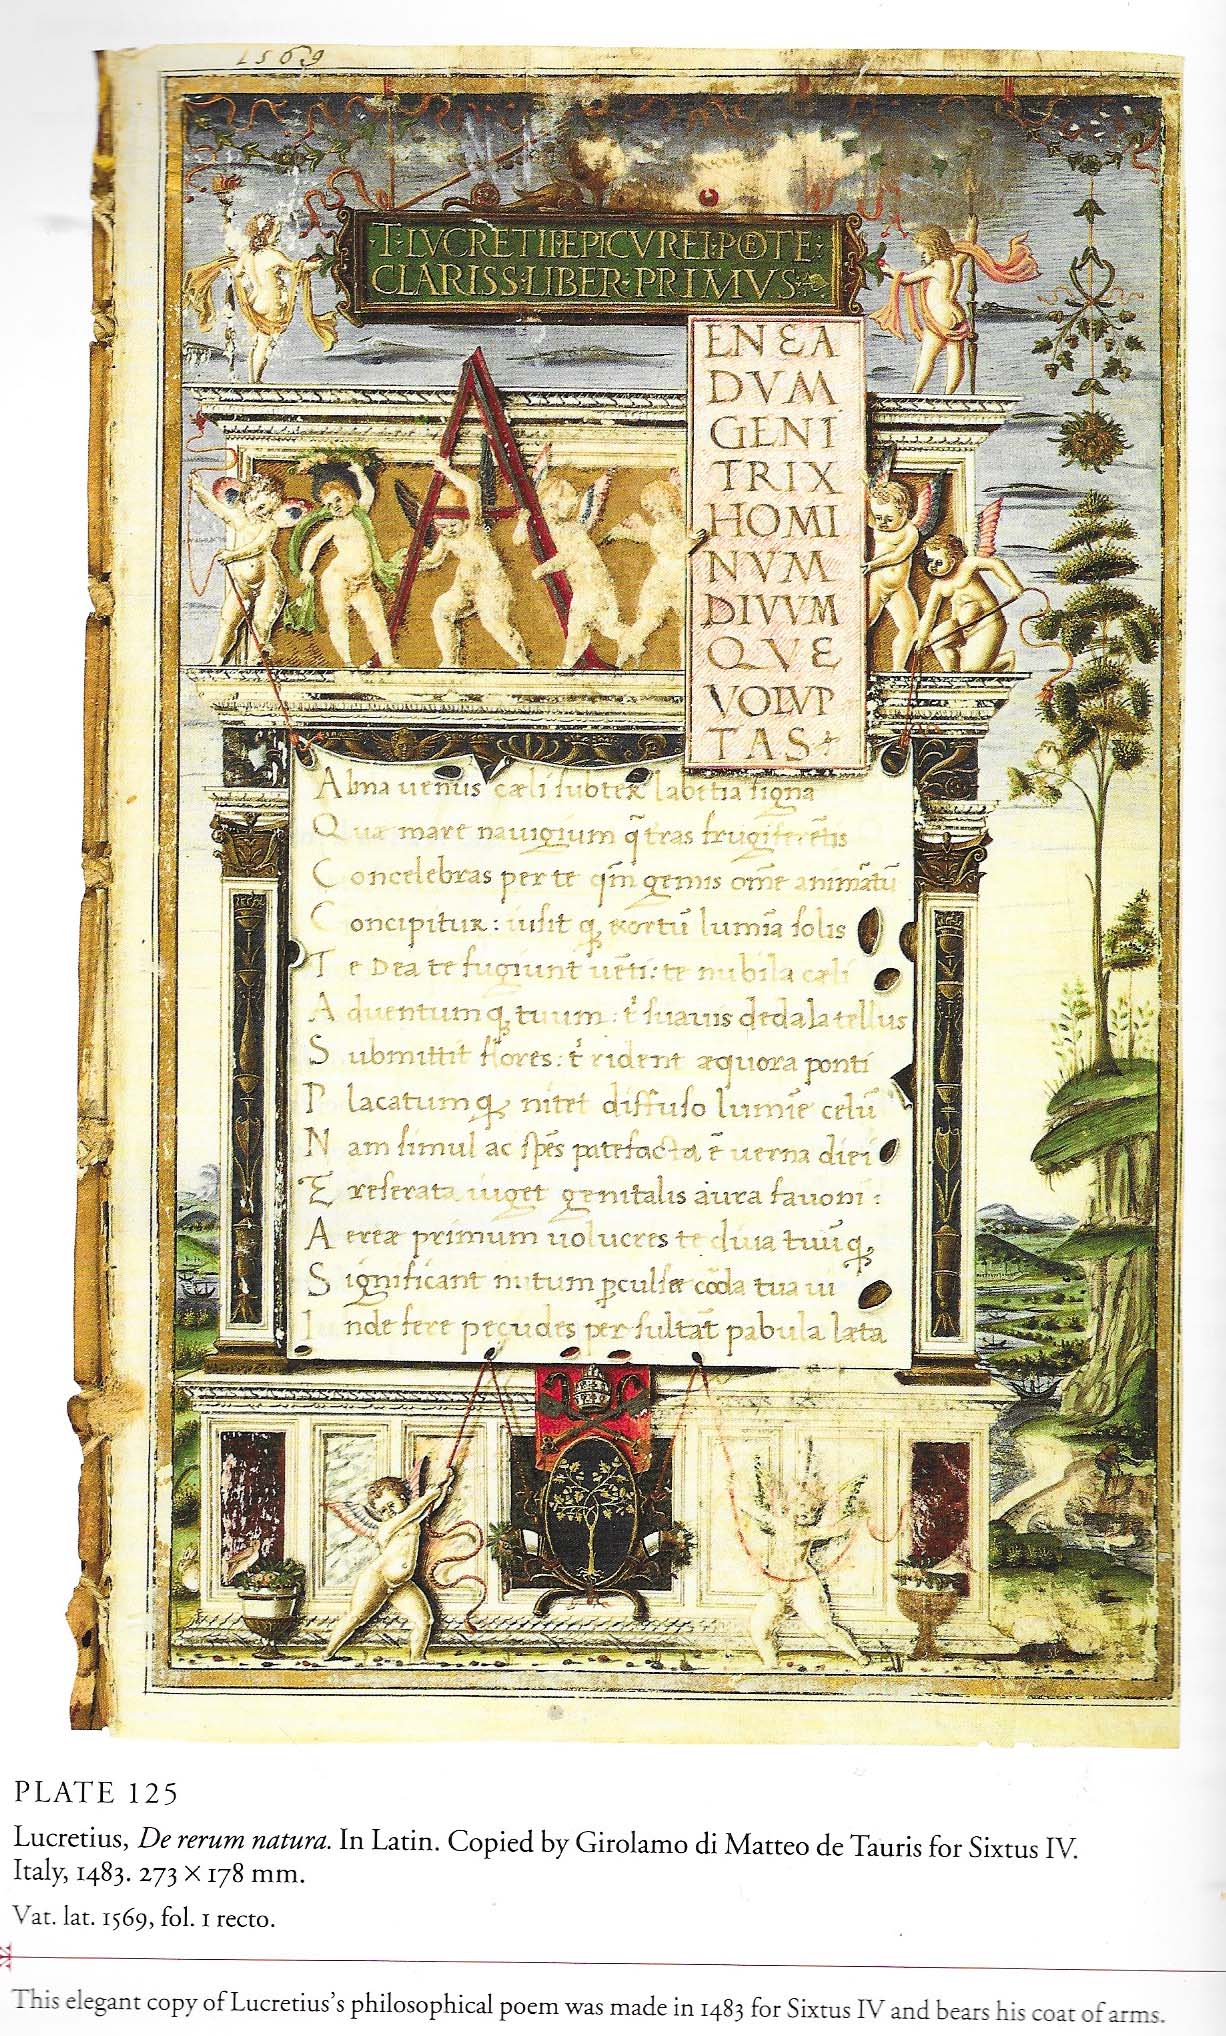 1569
·T·LVCRETII·EPICVREI·POETE·
CLARISS·LIBER·PRIMVS·
A
ENEA
DVM
GENI
TRIX
HOMI
NVM
DIVVM
QVE
VOLVP
TAS
Alma uenus cæli subter labētia signa
Quæ mare nauigium q̄ tras frugiferētis
Concelebras per te qm̄ genus om̄e animātū
Concipitur: uisit q; exortū lumīa solis
Te Dea te fugiunt uēti: te nubila cæli
Aduentumq; tuum: t' suauis dedala tellus
Submittit flores: t' rident æquora ponti
Placatumq; nitet diffuso lumīe celū
Nam simul ac spēs patefacta ē uerna diei
E reserata uiget genitalis aura fauoni:
Aereæ primum uolucres te diua tuū q;
Significant initum ꝑculsæ corda tua ui
Inde fere pecudes per sultāt pabula læta
PLATE 125
Lucretius, De rerum natura. In Latin. Copied by Girolamo di Matteo de Tauris for Sixtus IV.
Italy, 1483. 273 × 178 mm.
Vat. lat. 1569, fol. 1 recto.
This elegant copy of Lucretius's philosophical poem was made in 1483 for Sixtus IV and bears his coat of arms.